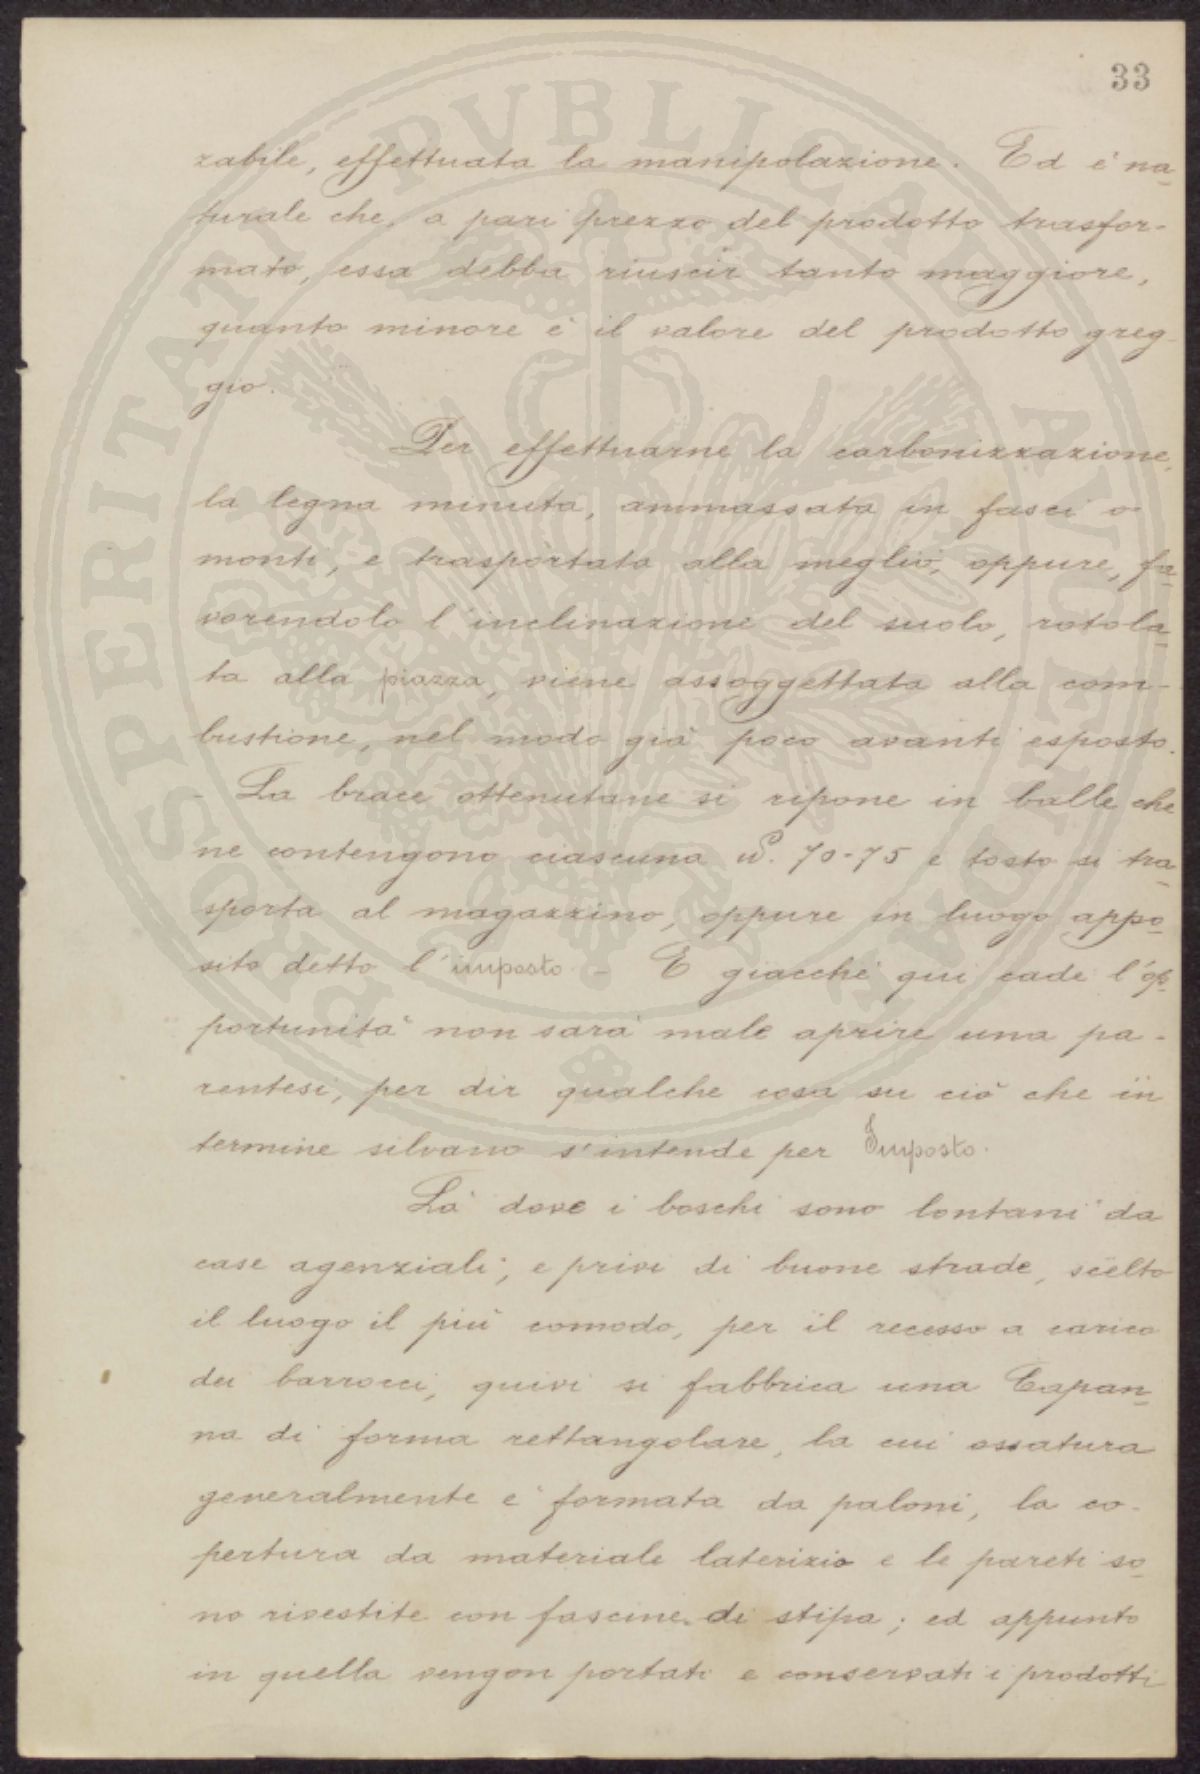 33
zabile, effettuata la manipolazione. Ed è na-
turale che, a pari prezzo del prodotto trasfor-
mato, essa debba riuscir tanto maggiore,
quanto minore è il valore del prodotto greg-
gio.
Per effettuarne la carbonizzazione,
la legna minuta, ammassata in fasci o
monti, e trasportata alla meglio, oppure, fa-
vorendolo l'inclinazione del suolo, rotola-
ta alla piazza, viene assoggettata alla com-
bustione, nel modo già poco avanti esposto.
- La brace ottenutane si ripone in balle che
ne contengono ciascuna 70-75 e tosto si tra-
sporta al magazzino, oppure in luogo appo-
sito detto l'imposto - E giacché qui cade l'op-
portunità non sarà male aprire una pa-
rentesi, per dir qualche cosa su ciò che in
termine silvano s'intende per Imposto.
Là dove i boschi sono lontani da
case agenziali, e privi di buone strade, scelto
il luogo il più comodo, per il recesso a carico
dei barrocci, quivi si fabbrica una Capan-
na di forma rettangolare, la cui ossatura
generalmente è formata da paloni, la co-
pertura da materiale laterizio e le pareti so-
no rivestite con fascine di stipa; ed appunto
in quella vengon portati e conservati i prodotti
PROSPERITATI PUBLICAE AUGENDAE